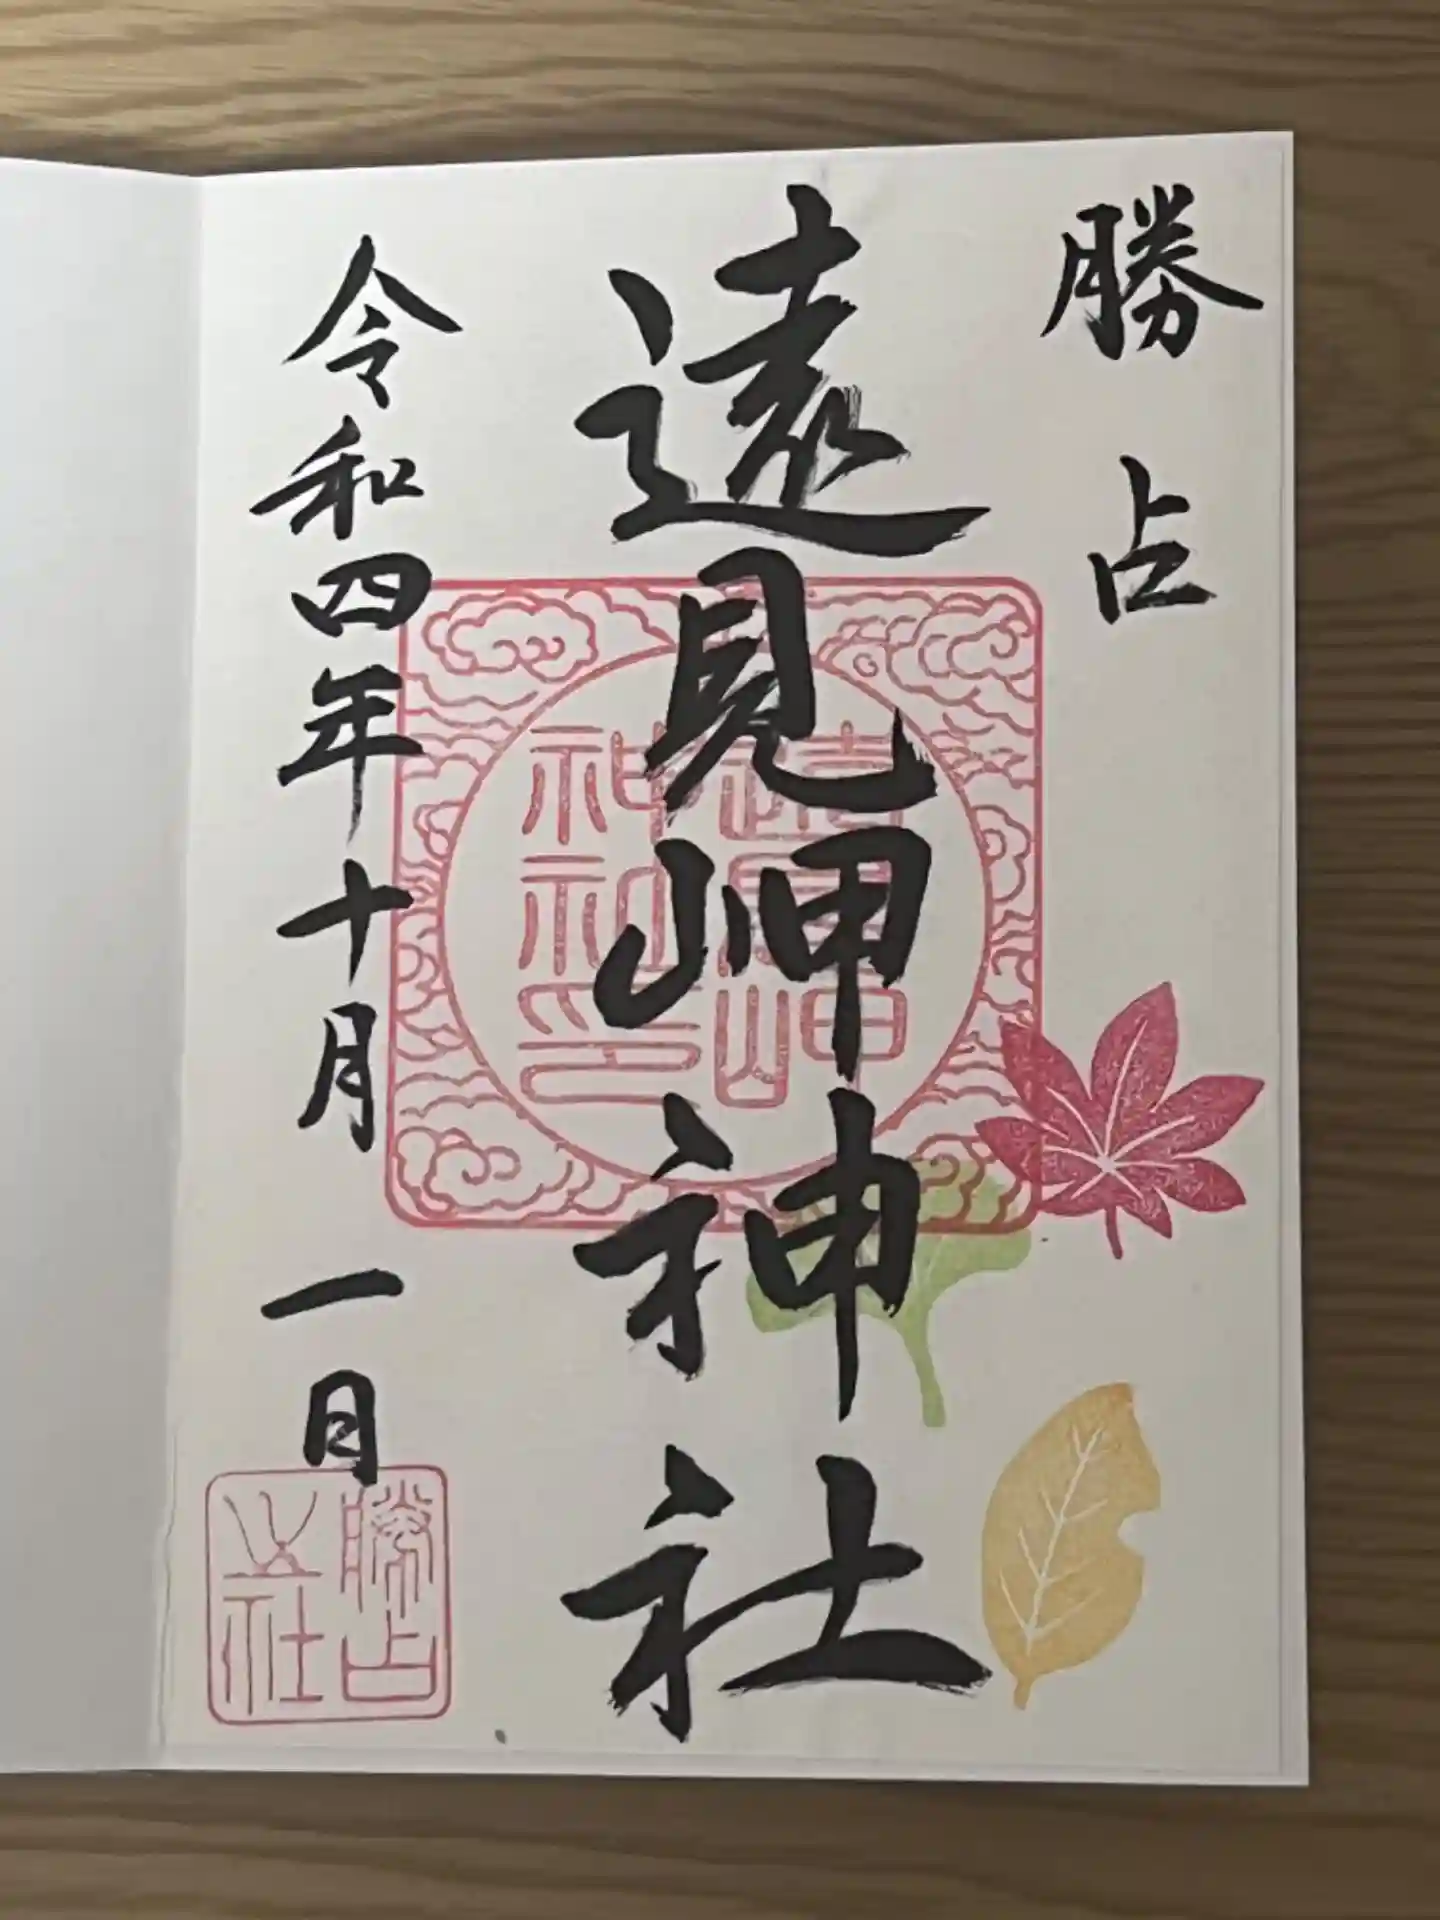 勝占
遠見岬神社
令和四年十月一日
遠見岬
神社印
勝占
之社